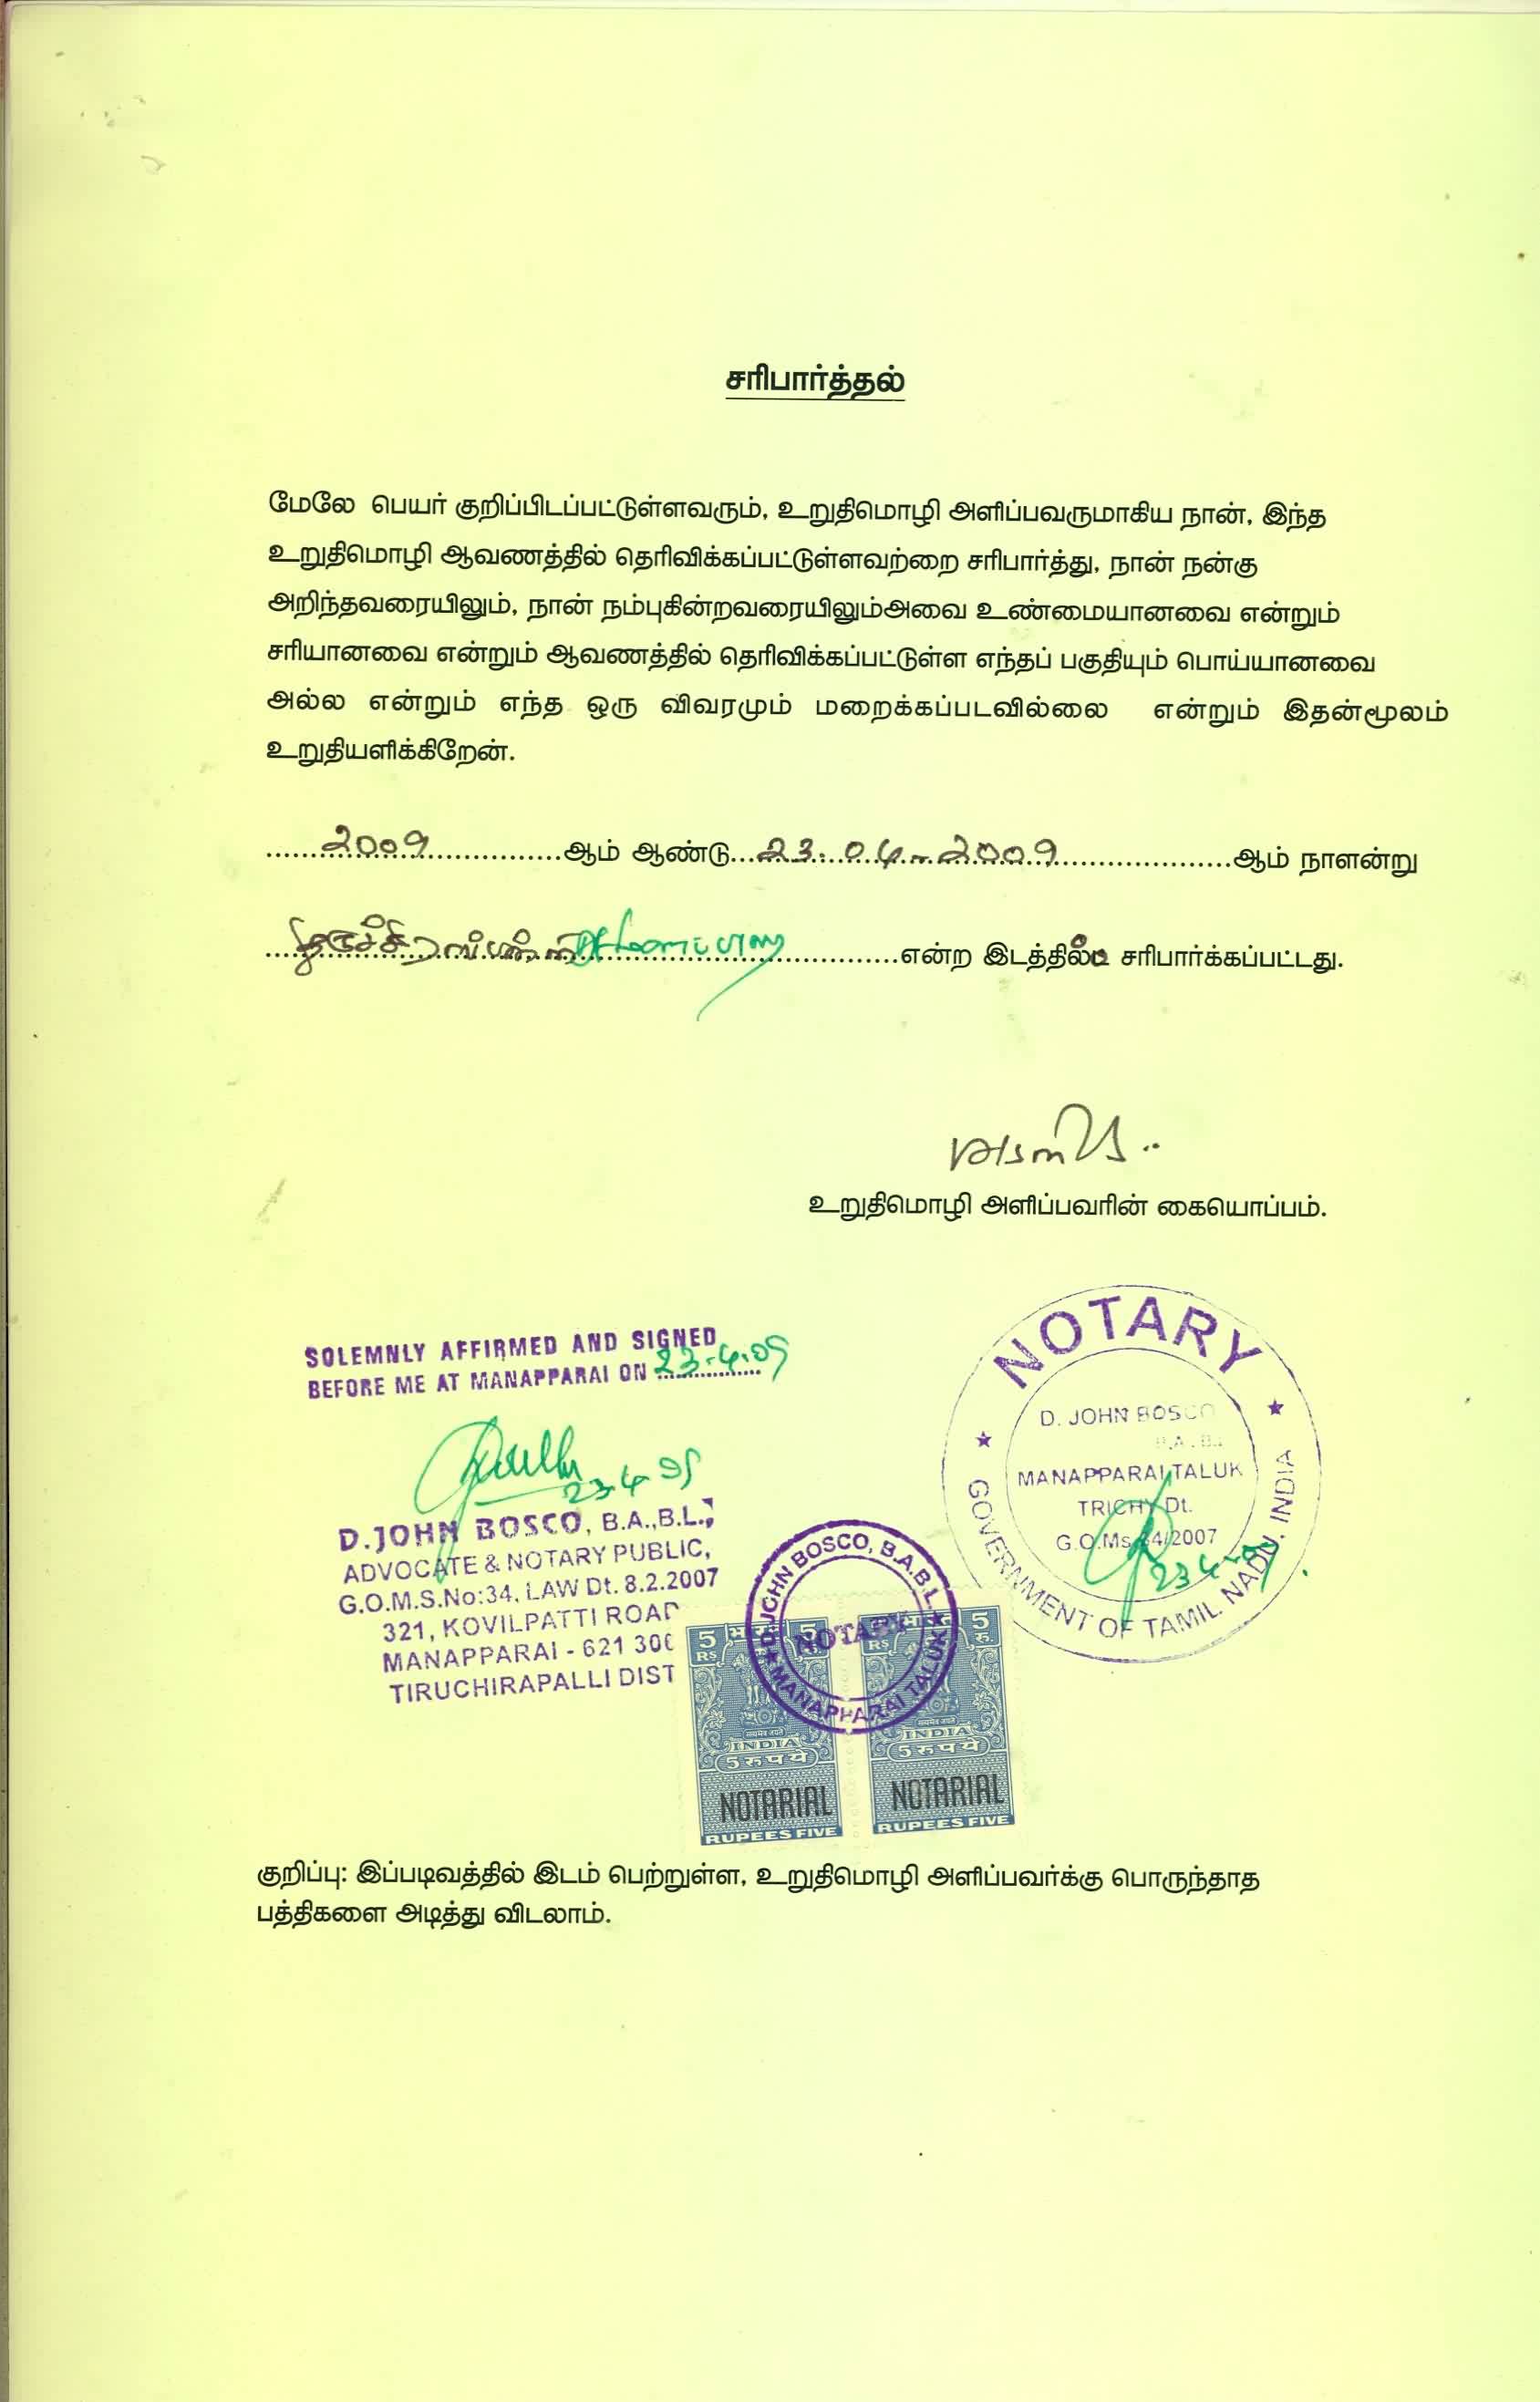 சரிபார்த்தல்
மேலே பெயர் குறிப்பிடப்பட்டுள்ளவரும், உறுதிமொழி அளிப்பவருமாகிய நான், இந்த
உறுதிமொழி ஆவணத்தில் தெரிவிக்கப்பட்டுள்ளவற்றை சரிபார்த்து, நான் நன்கு
அறிந்தவரையிலும், நான் நம்புகின்றவரையிலும்அவை உண்மையானவை என்றும்
சரியானவை என்றும் ஆவணத்தில் தெரிவிக்கப்பட்டுள்ள எந்தப் பகுதியும் பொய்யானவை
அல்ல என்றும் எந்த ஒரு விவரமும் மறைக்கப்படவில்லை என்றும் இதன்மூலம்
உறுதியளிக்கிறேன்.
2009 ஆம் ஆண்டு 23.04.2009 ஆம் நாளன்று
என்ற இடத்தில் சரிபார்க்கப்பட்டது.
உறுதிமொழி அளிப்பவரின் கையொப்பம்.
SOLEMNLY AFFIRMED AND SIGNED
BEFORE ME AT MANAPPARAI ON 23.4.09
D.JOHN BOSCO, B.A.,B.L.,
ADVOCATE & NOTARY PUBLIC,
G.O.M.S.No:34, LAW Dt. 8.2.2007
321, KOVILPATTI ROAD
MANAPPARAI - 621 306
TIRUCHIRAPALLI DIST
NOTARY
D. JOHN BOSCO
B.A.BL
MANAPPARAI TALUK
TRICHY Dt.
G.O.Ms.34/2007
GOVERNMENT OF TAMIL NADU, INDIA
D.JOHN BOSCO, B.A.B.L.
NOTARY
MANAPPARAI TALUK
5 RS भारत 5 रु.
INDIA
5 रुपये
NOTARIAL
RUPEES FIVE
5 RS भारत 5 रु.
INDIA
5 रुपये
NOTARIAL
RUPEES FIVE
குறிப்பு: இப்படிவத்தில் இடம் பெற்றுள்ள, உறுதிமொழி அளிப்பவர்க்கு பொருந்தாத
பத்திகளை அடித்து விடலாம்.